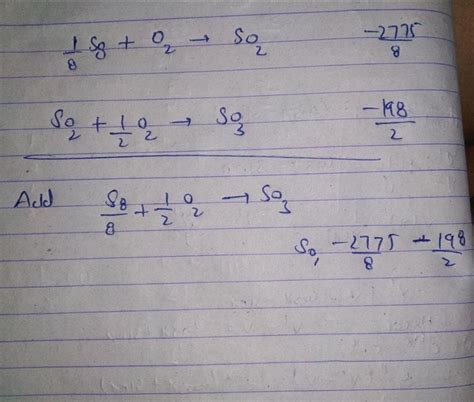 1/8 S8 + O2 → SO2 -2775/8
SO2 + 1/2 O2 → SO3 -198/2
Add S8/8 + 1/2 O2 → SO3
So, -2775/8 + -198/2